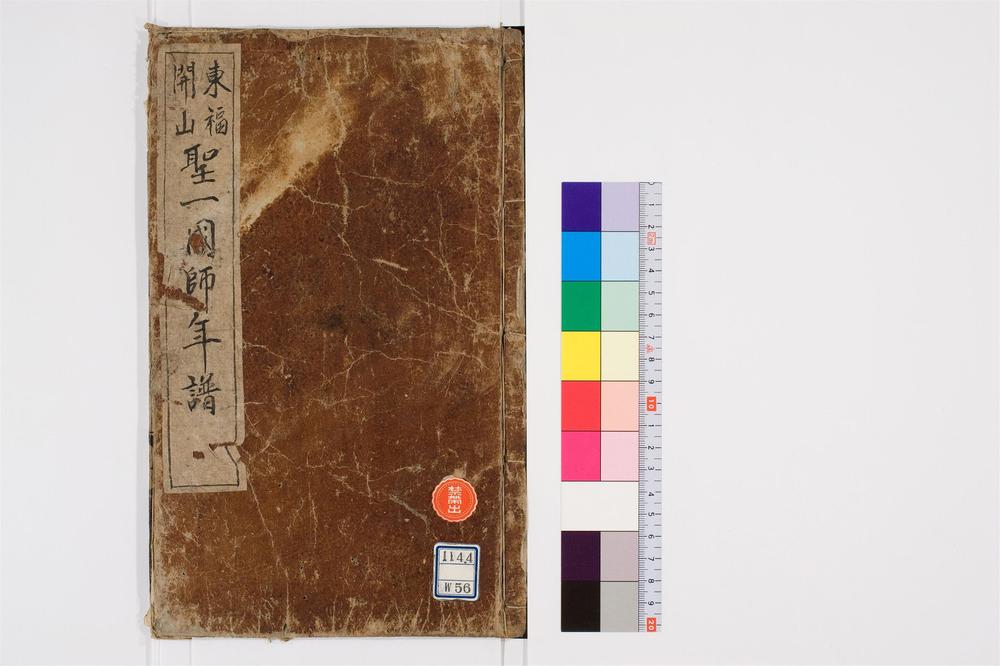 東福
開山
聖一國師年譜
禁帶出
1144
W56
1 2 3 4 5 6 7 8 9 10 1 2 3 4 5 6 7 8 9 20